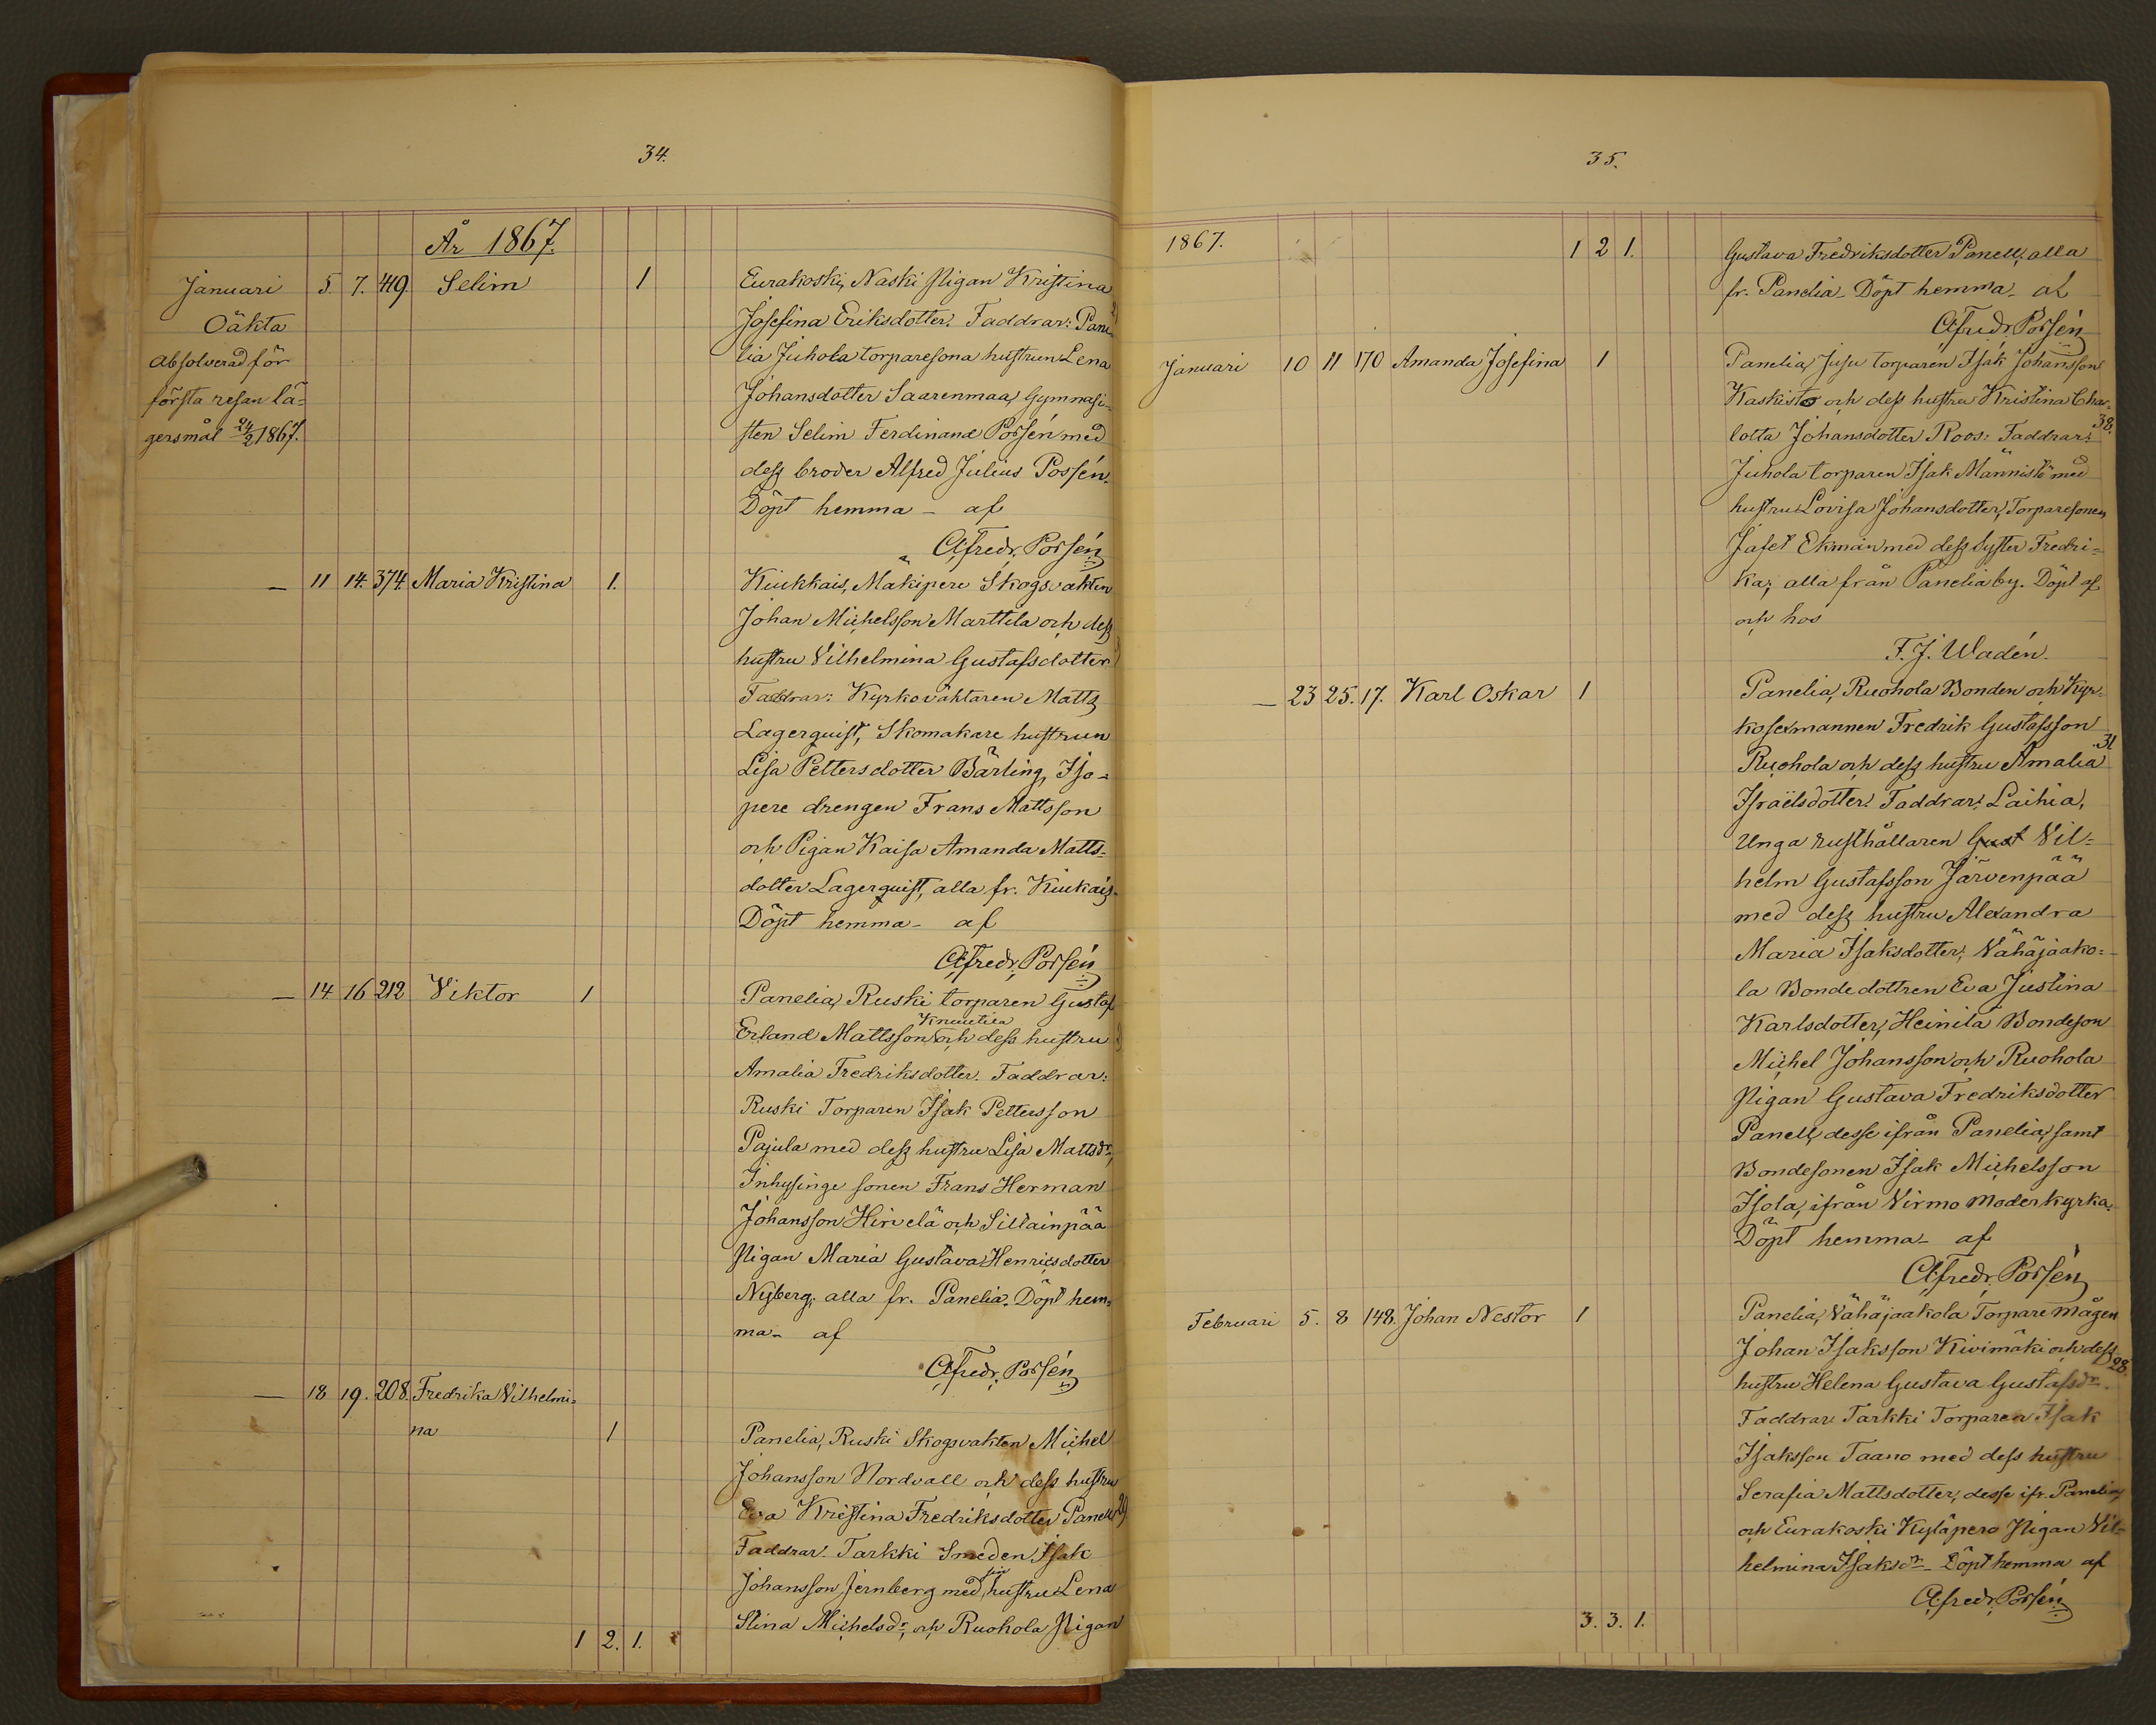 34.
År 1867.
Januari 5. 7. 449. Selim 1 Eurakoski, Naski Pigan Kristina
Oäkta Josefina Eriksdotter. Faddrar: Pane-
absolverad för lia Juhola torparesona hustrun Lena
första resan lä- Johansdotter Saarenmaa, Gymnasi-
gersmål 24/2 1867. sten Selim Ferdinand Porsén med
dess broder Alfred Julius Possén.
Döpt hemma - af
A. Fredr. Porsén
— 11 14. 374. Maria Kristina 1. Kiukkais, Mäkipere Skogsvakten
Johan Michelsson Marttila och dess
hustru Vilhelmina Gustafsdotter
Faddrar: Kyrkoväktaren Matts
Lagerquist, Skomakare hustrun
Lisa Pettersdotter Bärling, Iso-
pere drengen Frans Mattsson
och Pigan Kaisa Amanda Matts-
dotter Lagerquist, alla fr. Kiukais.
Döpt hemma - af
A. Fredr. Porsén
— 14 16 212 Viktor 1 Panelia, Ruski torparen Gustaf
Knuutila
Erland Mattsson och dess hustru
Amalia Fredriksdotter. Faddrar:
Ruski Torparen Isak Pettersson
Pajula med dess hustru Lisa Mattsdr,
Inhysinge sonen Frans Herman
Johansson Hirvelä och Sillainpää
Pigan Maria Gustava Henricsdotter
Nyberg; alla fr. Panelia. Döpt hem-
ma - af
A. Fredr. Porsén
— 18 19. 208. Fredrika Vilhelmi-
na 1 Panelia, Ruski Skogsvakten Michel
Johansson Nordvall och dess hustru
Eva Kristina Fredriksdotter Panell 29
Faddrar: Tarkki Smeden Isak
Johansson Jernberg med sin hustru Lena
Stina Michelsdr, och Ruohola Pigan
1 2. 1.
35.
1867. 1 2 1. Gustava Fredriksdotter Panell, alla
fr. Panelia - Döpt hemma - af
A. Fredr. Porsén
Januari 10 11 170 Amanda Josefina 1 Panelia, Juju torparen Isak Johansson
Kaskisto och dess hustru Kristina Char-
lotta Johansdotter Roos: Faddrar: 38.
Juhola torparen Isak Männistö med
hustru Lovisa Johansdotter, Torparesonen
Jafet Ekman med dess syster Fredri-
ka; alla från Panelia by. Döpt af
och hos
F. J. Wadén.
— 23 25. 17. Karl Oskar 1 Panelia, Ruohola Bonden och Kyr-
kosexmannen Fredrik Gustafsson 31
Ruohola och dess hustru Amalia
Israëlsdotter. Faddrar: Laihia,
Unga rusthållaren Gust Vil-
helm Gustafsson Järvenpää
med dess hustru Alexandra
Maria Isaksdotter; Vähäjaako-
la Bondedottren Eva Justina
Karlsdotter, Heinilä Bondeson
Michel Johansson och Ruohola
Pigan Gustava Fredriksdotter
Panell, desse ifrån Panelia, samt
Bondesonen Isak Michelsson
Isola, ifrån Virmo moderkyrka.
Döpt hemma - af
A. Fredr. Porsén
Februari 5. 8 148. Johan Nestor 1 Panelia, Vähäjaakola Torpare mågen
Johan Isaksson Kivimäki och dess 28.
hustru Helena Gustava Gustafsdr.
Faddrar Tarkki Torparen Isak
Isaksson Taano med dess hustru
Serafia Mattsdotter, desse ifr. Panelia,
och Eurakoski Kyläpero Pigan Vil-
helmina Isaksdr - Döpt hemma af
A. Fredr. Porsén
3. 3. 1.